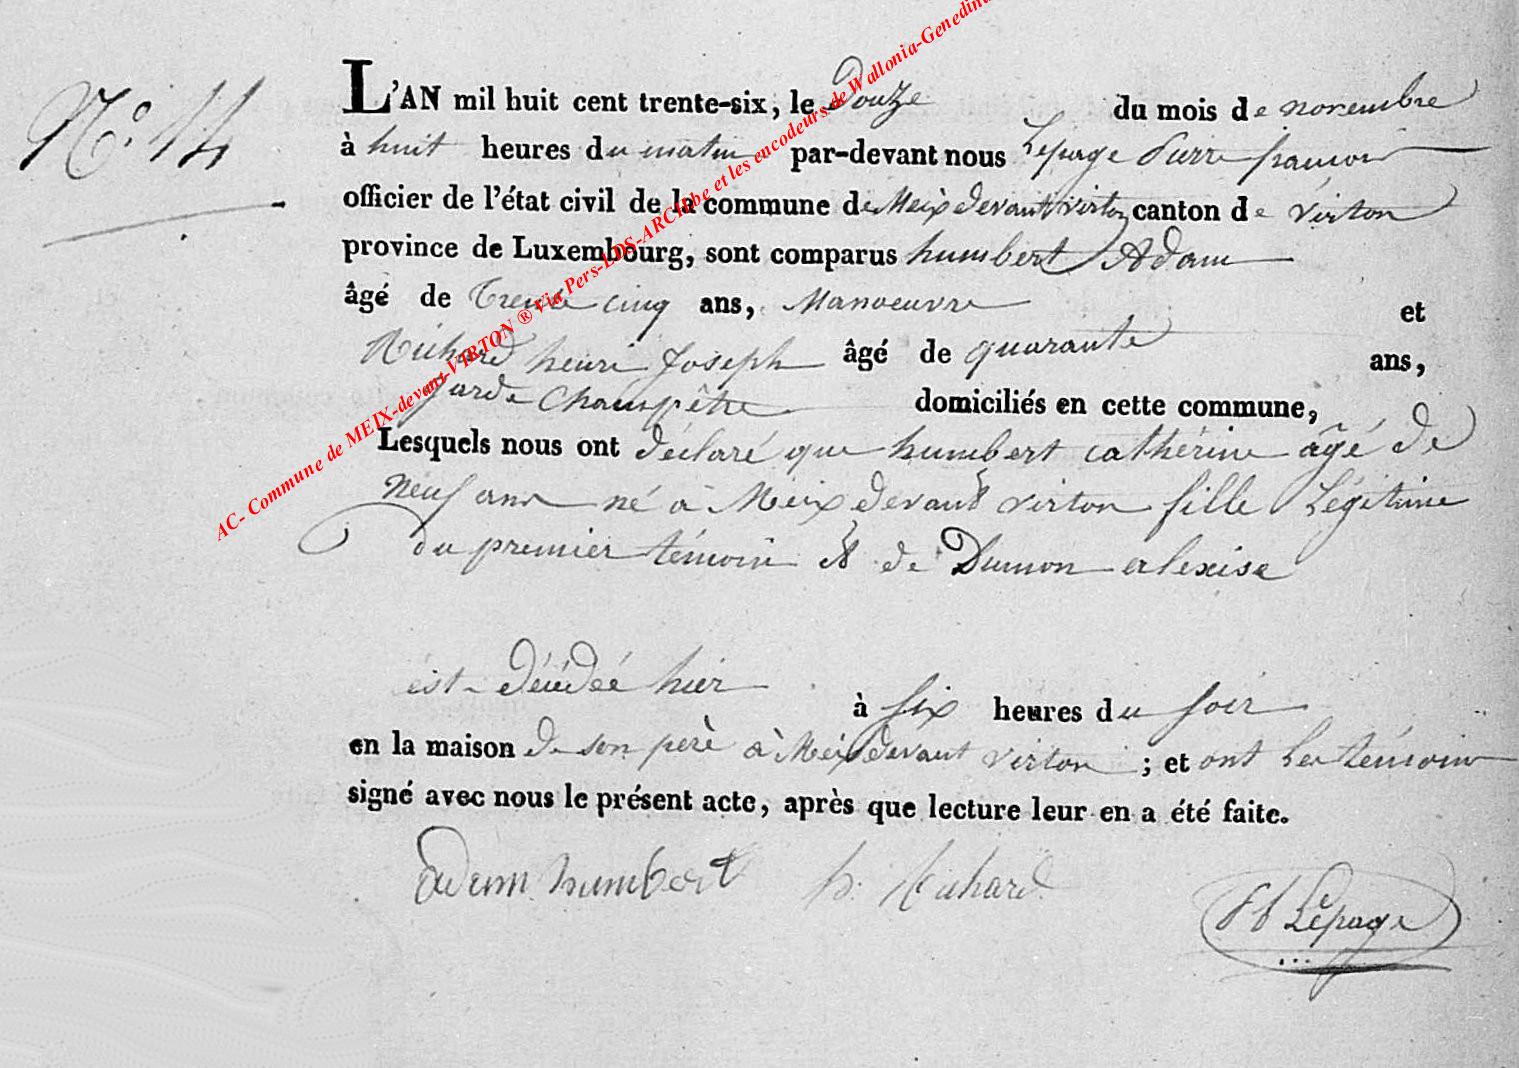 N.o 14
L'AN mil huit cent trente-six, le Douze du mois de novembre
à huit heures du matin par-devant nous Lepage Pierre françois
officier de l'état civil de la commune de Meix devant virton canton de virton
province de Luxembourg, sont comparus humbert Adam
âgé de Trente cinq ans, Manoeuvre et
Richard henri Joseph âgé de quarante ans,
garde Champêtre domiciliés en cette commune,
Lesquels nous ont déclaré que humbert cathérine âgé de
neuf ans né à Meix devant virton fille Légitime
du premier témoin et de Dumon alexise
est décédée hier à six heures du soir
en la maison de son père à Meix devant virton ; et ont les témoins
signé avec nous le présent acte, après que lecture leur en a été faite.
adam humbert h. Richard
Lepage
AC- Commune de MEIX-devant-VIRTON ® Via Pers-LDS-ARCH.be et les encodeurs de Wallonia-Genedina